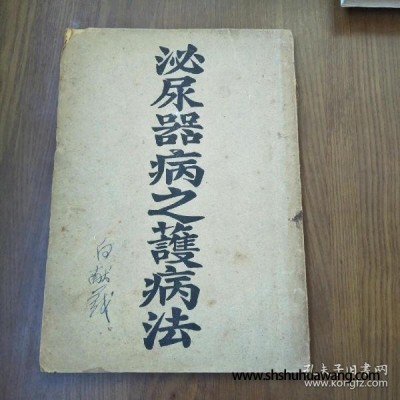 泌尿器病之護病法
白献義
www.shshuhuawang.com
孔夫子旧书网
www.kongfz.com